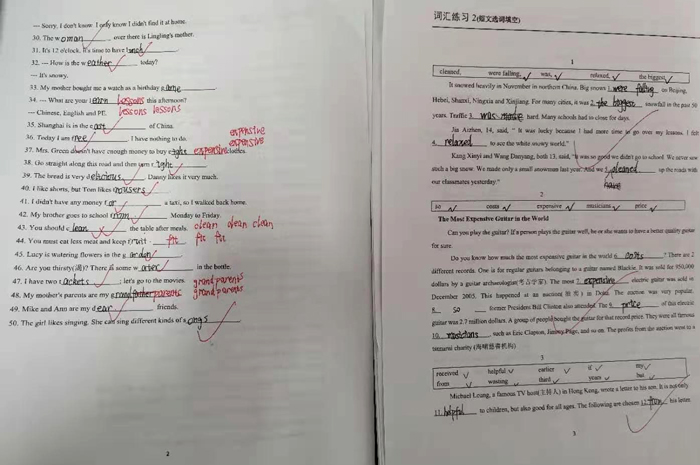 — Sorry, I don't know. I only know I didn't find it at home.
30. The woman over there is Lingling's mother.
31. It's 12 o'clock. It's time to have lunch
32. — How is the weather today?
— It's snowy.
33. My mother bought me a watch as a birthday
34. — What are your lessons this afternoon? lessons
— Chinese, English and PE. lessons lessons
35. Shanghai is in the east of China.
36. Today I am free I have nothing to do.
expensive
expensive
37. Mrs. Green doesn't have enough money to buy expensive clothes.
38. Go straight along this road and then turn right
39. The bread is very delicious Danny likes it very much.
40. I like shorts, but Tom likes trousers
41. I didn't have any money for a taxi, so I walked back home.
42. My brother goes to school from Monday to Friday.
43. You should clean the table after meals. clean clean clean
44. You must eat less meat and keep fit fit fit
45. Lucy is watering flowers in the garden
46. Are you thirsty(渴)? There is some water in the bottle.
47. I have two tickets ; let's go to the movies. grandparents
48. My mother's parents are my grandparents
49. Mike and Ann are my dear friends.
50. The girl likes singing. She can sing different kinds of songs
2
词汇练习 2(短文选词填空)
1
cleaned, were falling, was, relaxed, the biggest
It snowed heavily in November in northern China. Big snows 1. were falling on Beijing,
Hebei, Shanxi, Ningxia and Xinjiang. For many cities, it was 2. the biggest snowfall in the past 50
years. Traffic 3. was made hard. Many schools had to close for days.
Jia Aizhen, 14, said, " It was lucky because I had more time to go over my lessons. I felt
4. relaxed to see the white snowy world."
Kang Xinyi and Wang Danyang, both 13, said, "It was so good we didn't go to school. We never saw
such a big snow. We made only a small snowman last year. And we 5. cleaned up the roads with
our classmates yesterday."
2
so costs expensive musicians price
The Most Expensive Guitar in the World
Can you play the guitar? If a person plays the guitar well, he or she wants to have a better quality guitar
for sure.
Do you know how much the most expensive guitar in the world 6. costs ? There are 2
different records. One is for regular guitars belonging to a guitar named Blackie. It was sold for 950,000
dollars by a guitar archaeologist(考古学家). The most 7. expensive electric guitar was sold in
December 2005. This happened at an auction(拍卖) in Doha. The auction was very popular.
8. so former President Bill Clinton also attended. The 9. price of this electric
guitar was 2.7 million dollars. A group of people bought the guitar for that record price. They were all famous
10. musicians , such as Eric Clapton, Jimmy Page, and so on. The profits from the auction went to a
tsunami charity (海啸慈善机构)
3
received helpful earlier if my
from wasting third years but
Michael Leung, a famous TV host(主持人) in Hong Kong, wrote a letter to his son. It is not only
11. helpful to children, but also good for all ages. The following are chosen 12. from his letter.
3